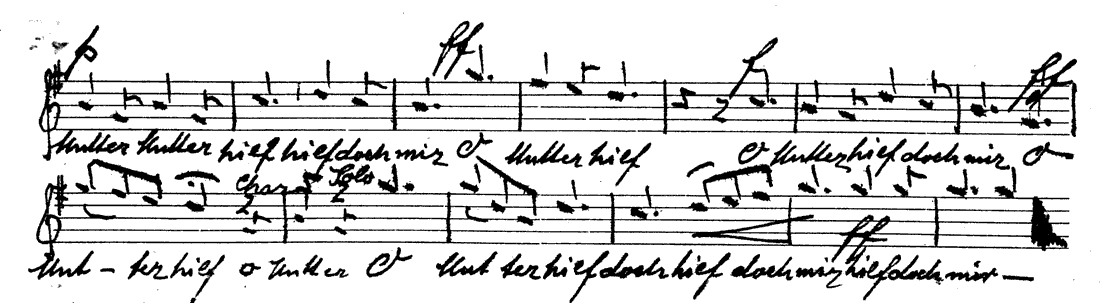 p ff f ff
Mutter Mutter hielf hielf doch mir O Mutter hielf O Mutter hielf doch mir O
Chor Solo
Mut - ter hielf o Mutter O Mut ter hielf doch hielf doch mir hielf doch mir
ff